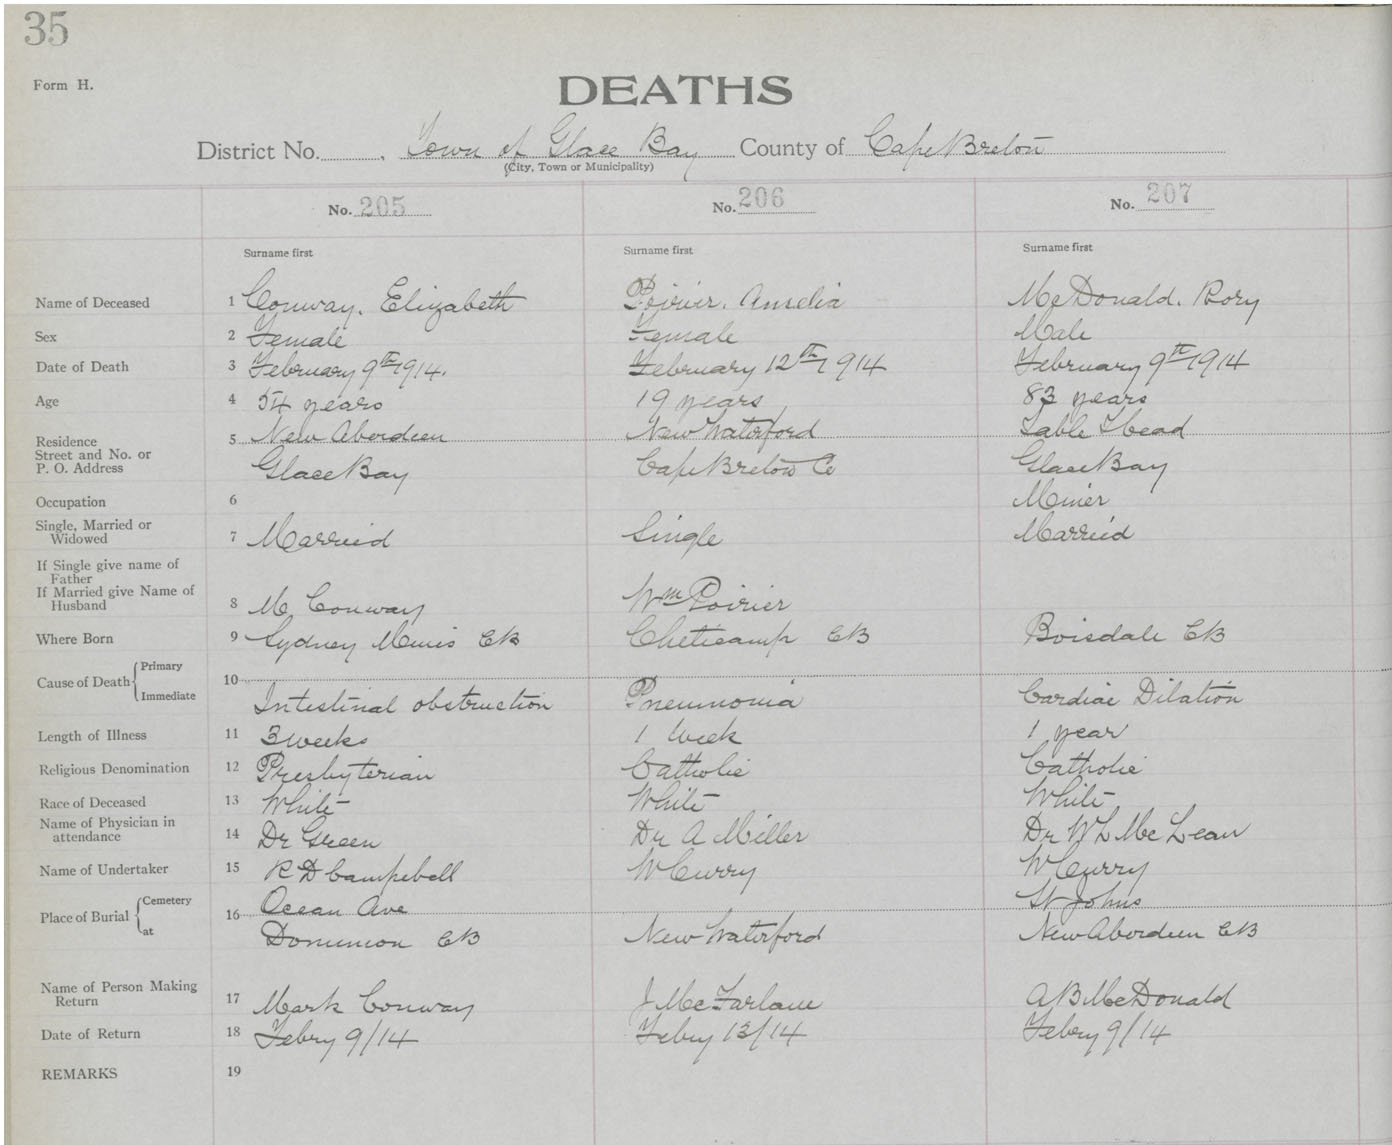 35
Form H.
DEATHS
District No. , Town of Glace Bay County of Cape Breton
(City, Town or Municipality)
No. 205 No. 206 No. 207
Surname first Surname first Surname first
Name of Deceased 1 Conway, Elizabeth Poirier, Amelia McDonald, Rory
Sex 2 Female Female Male
Date of Death 3 February 9th 1914. February 12th 1914 February 9th 1914
Age 4 54 years 19 years 83 years
Residence 5 New Aberdeen New Waterford Table Head
Street and No. or
P. O. Address Glace Bay Cape Breton Co Glace Bay
Occupation 6 Miner
Single, Married or
Widowed 7 Married Single Married
If Single give name of
Father
If Married give Name of
Husband 8 M Conway Wm Poirier
Where Born 9 Sydney Mines CB Cheticamp CB Boisdale CB
Cause of Death Primary 10
Immediate Intestinal obstruction Pneumonia Cardiac Dilation
Length of Illness 11 3 weeks 1 Week 1 year
Religious Denomination 12 Presbyterian Catholic Catholic
Race of Deceased 13 White White White
Name of Physician in
attendance 14 Dr Green Dr A Miller Dr W L McLean
Name of Undertaker 15 R D Campbell W Curry W Curry
Place of Burial Cemetery 16 Ocean Ave St Johns
at Dominion CB New Waterford New Aberdeen CB
Name of Person Making
Return 17 Mark Conway J McFarlane A B McDonald
Date of Return 18 Febry 9/14 Febry 13/14 Febry 9/14
REMARKS 19